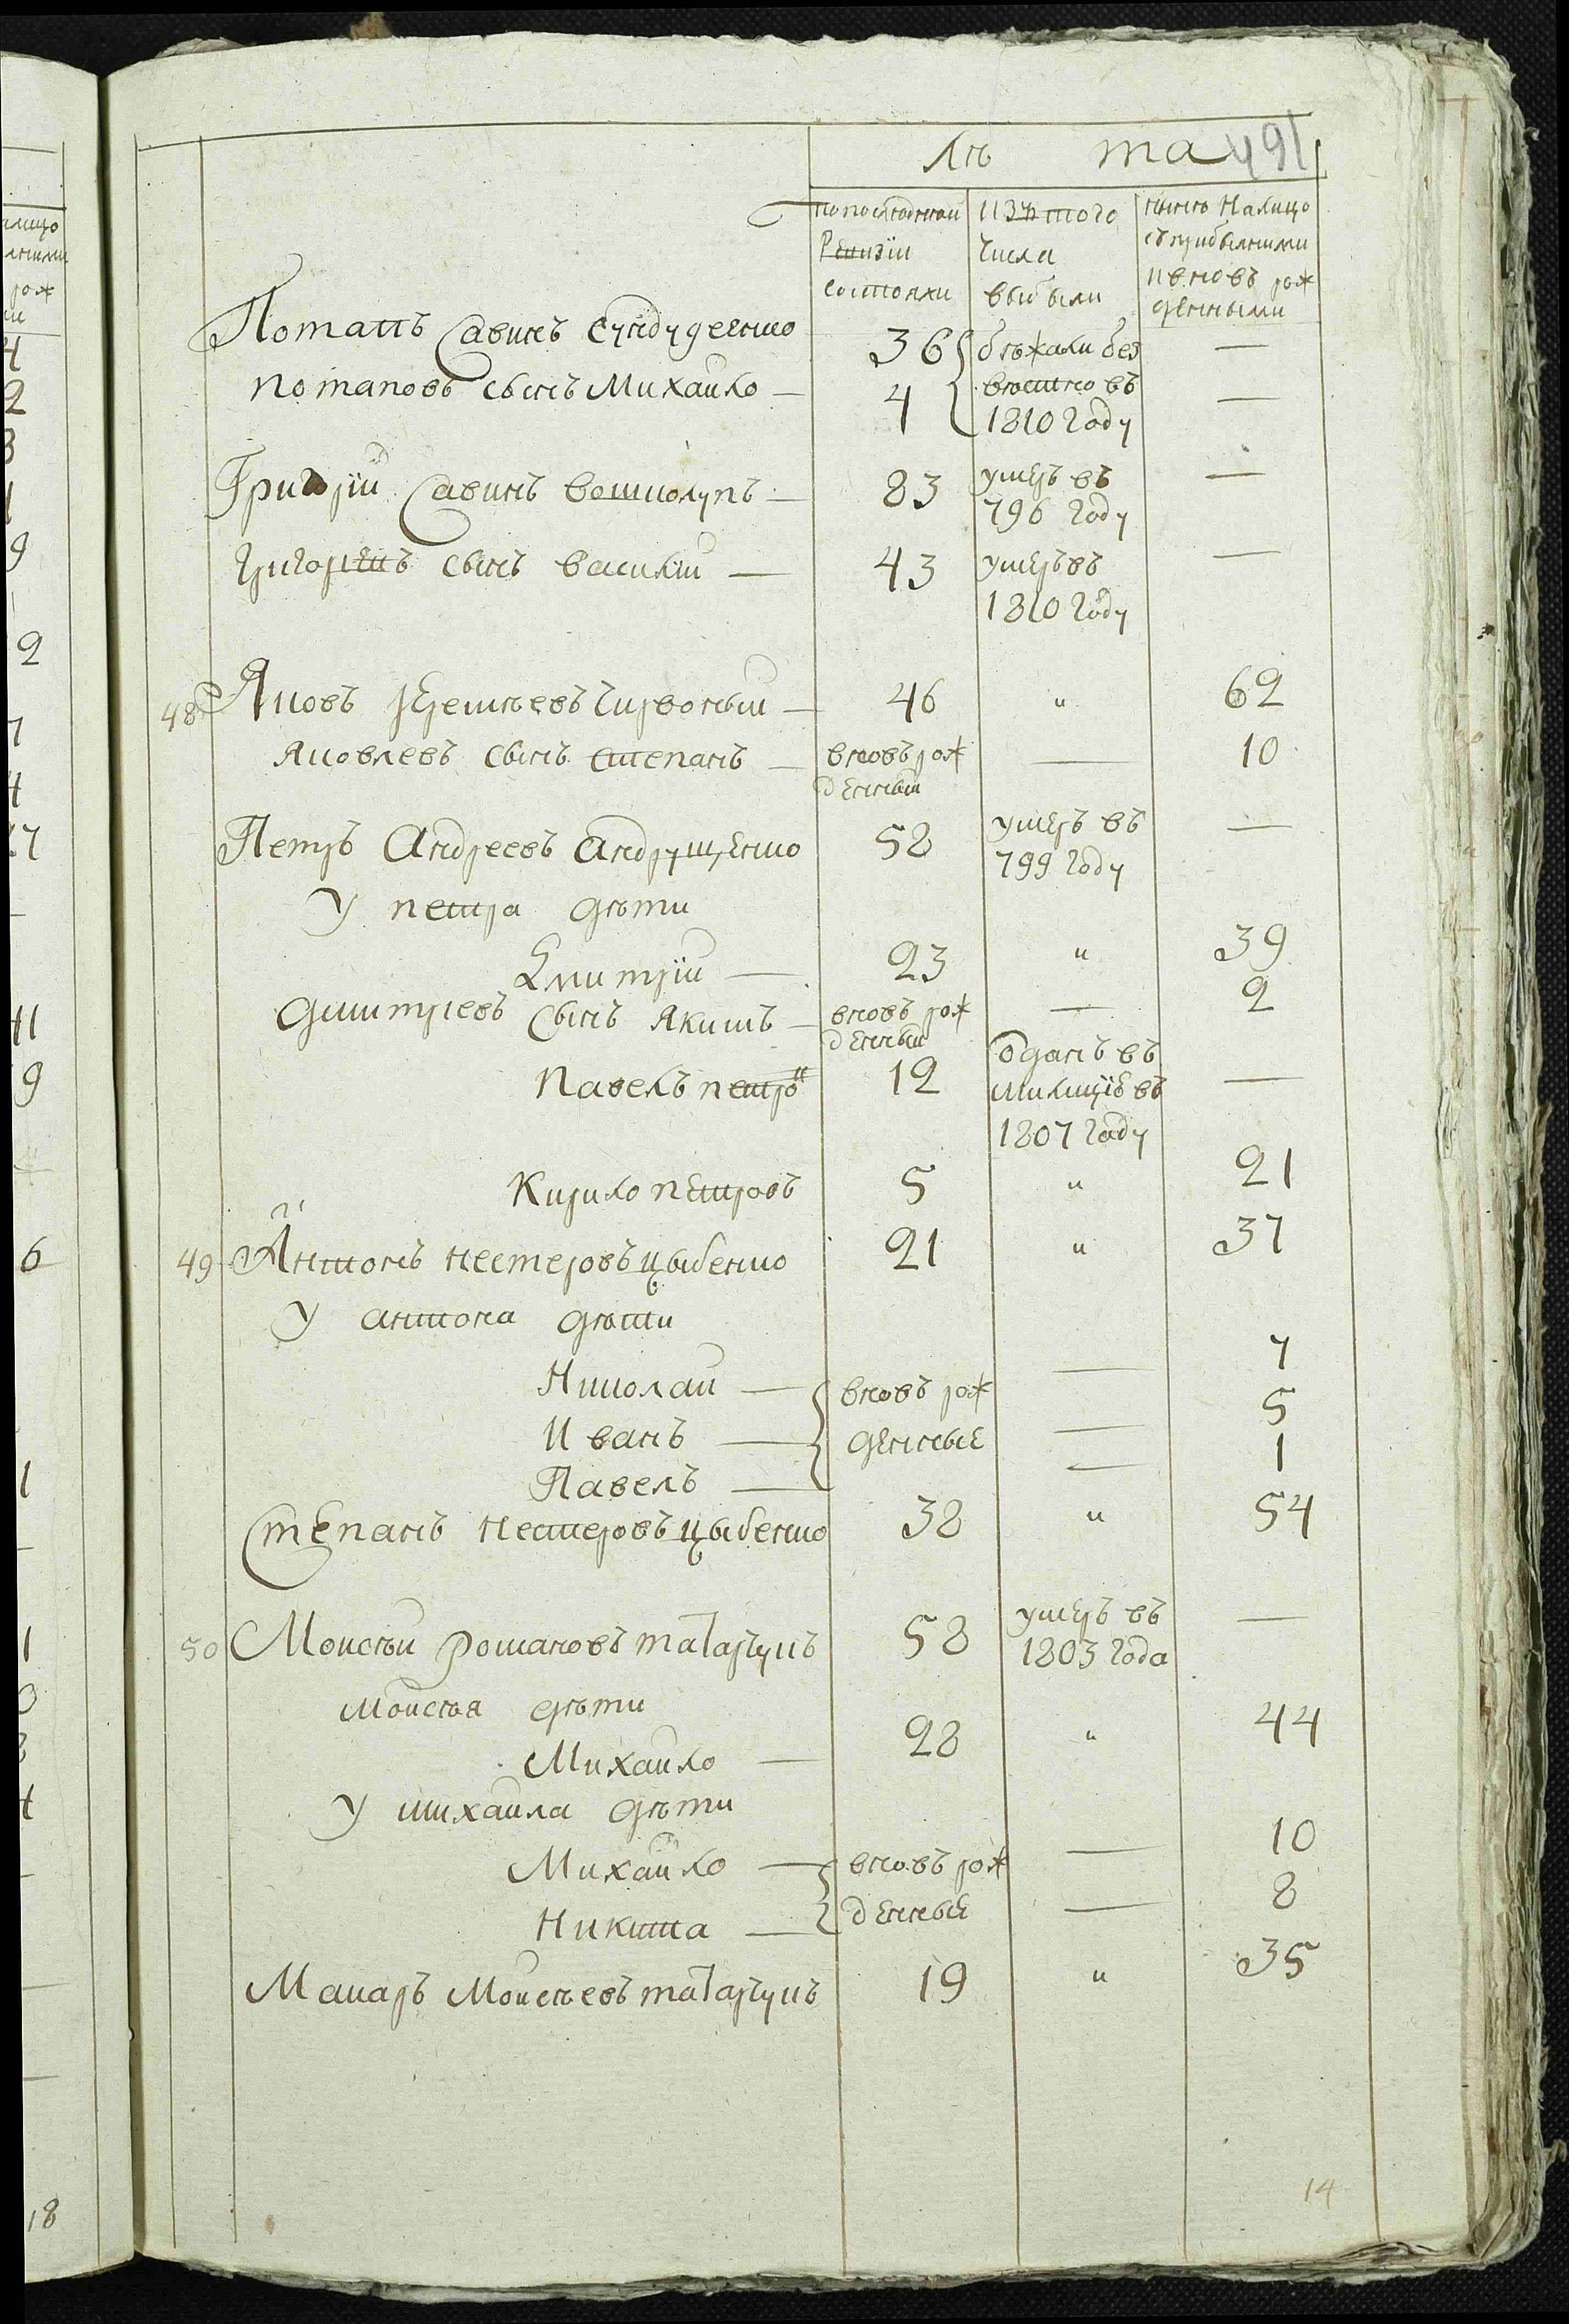 Лѣ та 491
по последней изъ того нынѣ налицо
Ревизіи числа съ прибылыми
состояли выбыли и вновь рож
денными
Потапъ Савинъ 36 бѣжали без
потаповъ сынъ Михайло — 4 вѣстно въ —
1810 году
Григорій Савинъ — 83 умеръ въ —
796 году
григорьевъ сынъ василій — 43 умеръ въ —
1810 году
48 Яковъ Еремѣевъ Чирвоный — 46 " 62
Яковлевъ сынъ степанъ — вновь рож — 10
денный
Петръ Андреевъ Андрущенко 58 умеръ въ —
799 году
У петра дѣти
Дмитрій — 23 " 39
Дмитріевъ сынъ Якимъ — вновь рож — 2
денный
Павелъ петров 12 отданъ въ
милицію въ —
1807 году
Кирило петровъ 5 " 21
49 Антонъ нестеровъ цыбенко 21 " 37
У антона дѣти
Николай — вновь рож — 7
Иванъ — денные — 5
Павелъ — — 1
Степанъ нестеровъ цыбенко 38 " 54
50 Моисѣй романовъ татарчукъ 58 умеръ въ —
1803 года
Моисѣя дѣти
Михайло — 28 " 44
У михайла дѣти
Михайло — вновь рож — 10
Никита — денные — 8
Макаръ Моисѣевъ татарчукъ 19 " 35
14
18